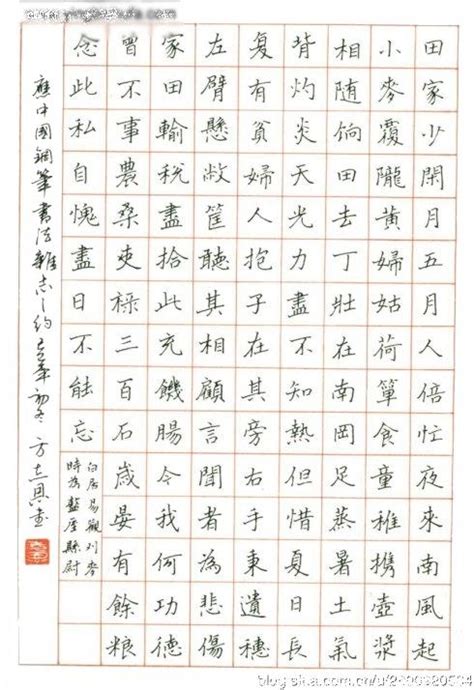 田家少閑月五月人倍忙夜來南風起
小麥覆隴黃婦姑荷簞食童稚攜壺漿
相随餉田去丁壯在南岡足蒸暑土氣
背灼炎天光力盡不知熱但惜夏日長
复有貧婦人抱子在其旁右手秉遺穗
左臂懸敝筐聽其相顧言聞者為悲傷
家田輸稅盡拾此充饑腸今我何功德
曾不事農桑吏祿三百石歲晏有餘糧
念此私自愧盡日不能忘
白居易觀刈麥
時為盩厔縣尉
應中國鋼筆書法雜志之約初冬方志恩書
blog.sina.com.cn/u/